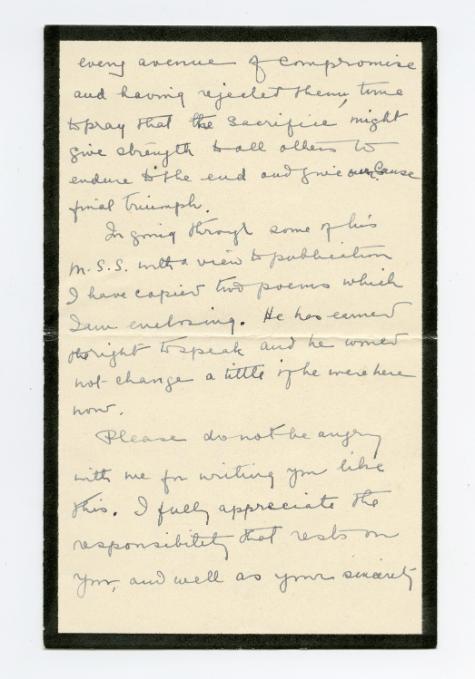 every avenue of compromise
and having rejected them, time
to pray that the sacrifice might
give strength to all others to
endure to the end and give our Cause
final triumph.
In going through some of his
M.S.S. with a view to publication
I have copied two poems which
I am enclosing. He has earned
the right to speak and he would
not change a tittle if he were here
now.
Please do not be angry
with me for writing you like
this. I fully appreciate the
responsibility that rests on
you, and well as your sincerity